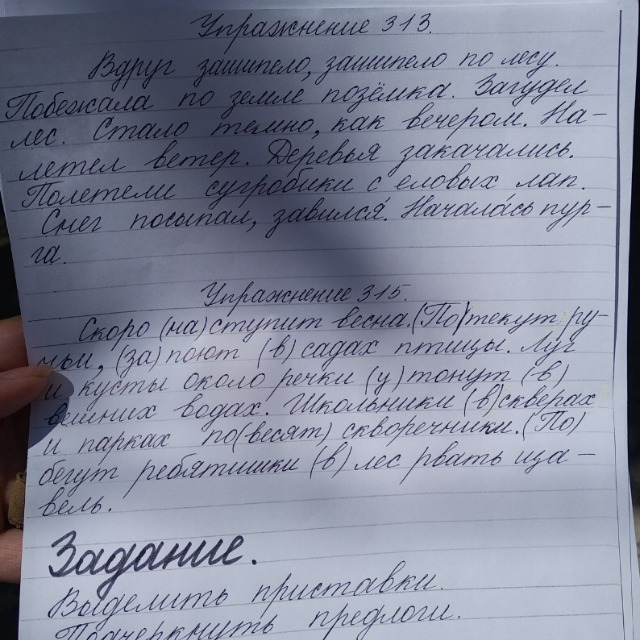 Упражнение 313.
Вдруг зашипело, зашипело по лесу.
Побежала по земле позёмка. Загудел
лес. Стало темно, как вечером. На-
летел ветер. Деревья закачались.
Полетели сугробики с еловых лап.
Снег посыпал, завился. Начала́сь пур-
га.
Упражнение 315.
Скоро (на)ступит весна. (По)текут ру-
чьи, (за)поют (в) садах птицы. Луг
и кусты около речки (у)тонут (в)
вешних водах. Школьники (в)скверах
и парках по(весят) скворечники. (По)
бегут ребятишки (в) лес рвать ща-
вель.
Задание.
Выделить приставки.
Подчеркнуть предлоги.